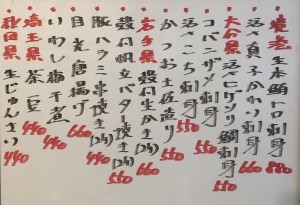 焼津 生本鮪トロ刺身 880
活〆真子かれい刺身
大分県 活〆ヒゲソリ鯛刺身 550
コバンザメ刺身 550
活〆こち刺身 550
かつお土佐造り
岩手県 殻付生かき 660
殻付ホ立バター焼き(2ヶ) 550
豚ハラミ串焼き(2ヶ) 440
目光唐揚げ 660
いわし梅干煮 440
埼玉県 茶豆 440
秋田県 生じゅんさい 440